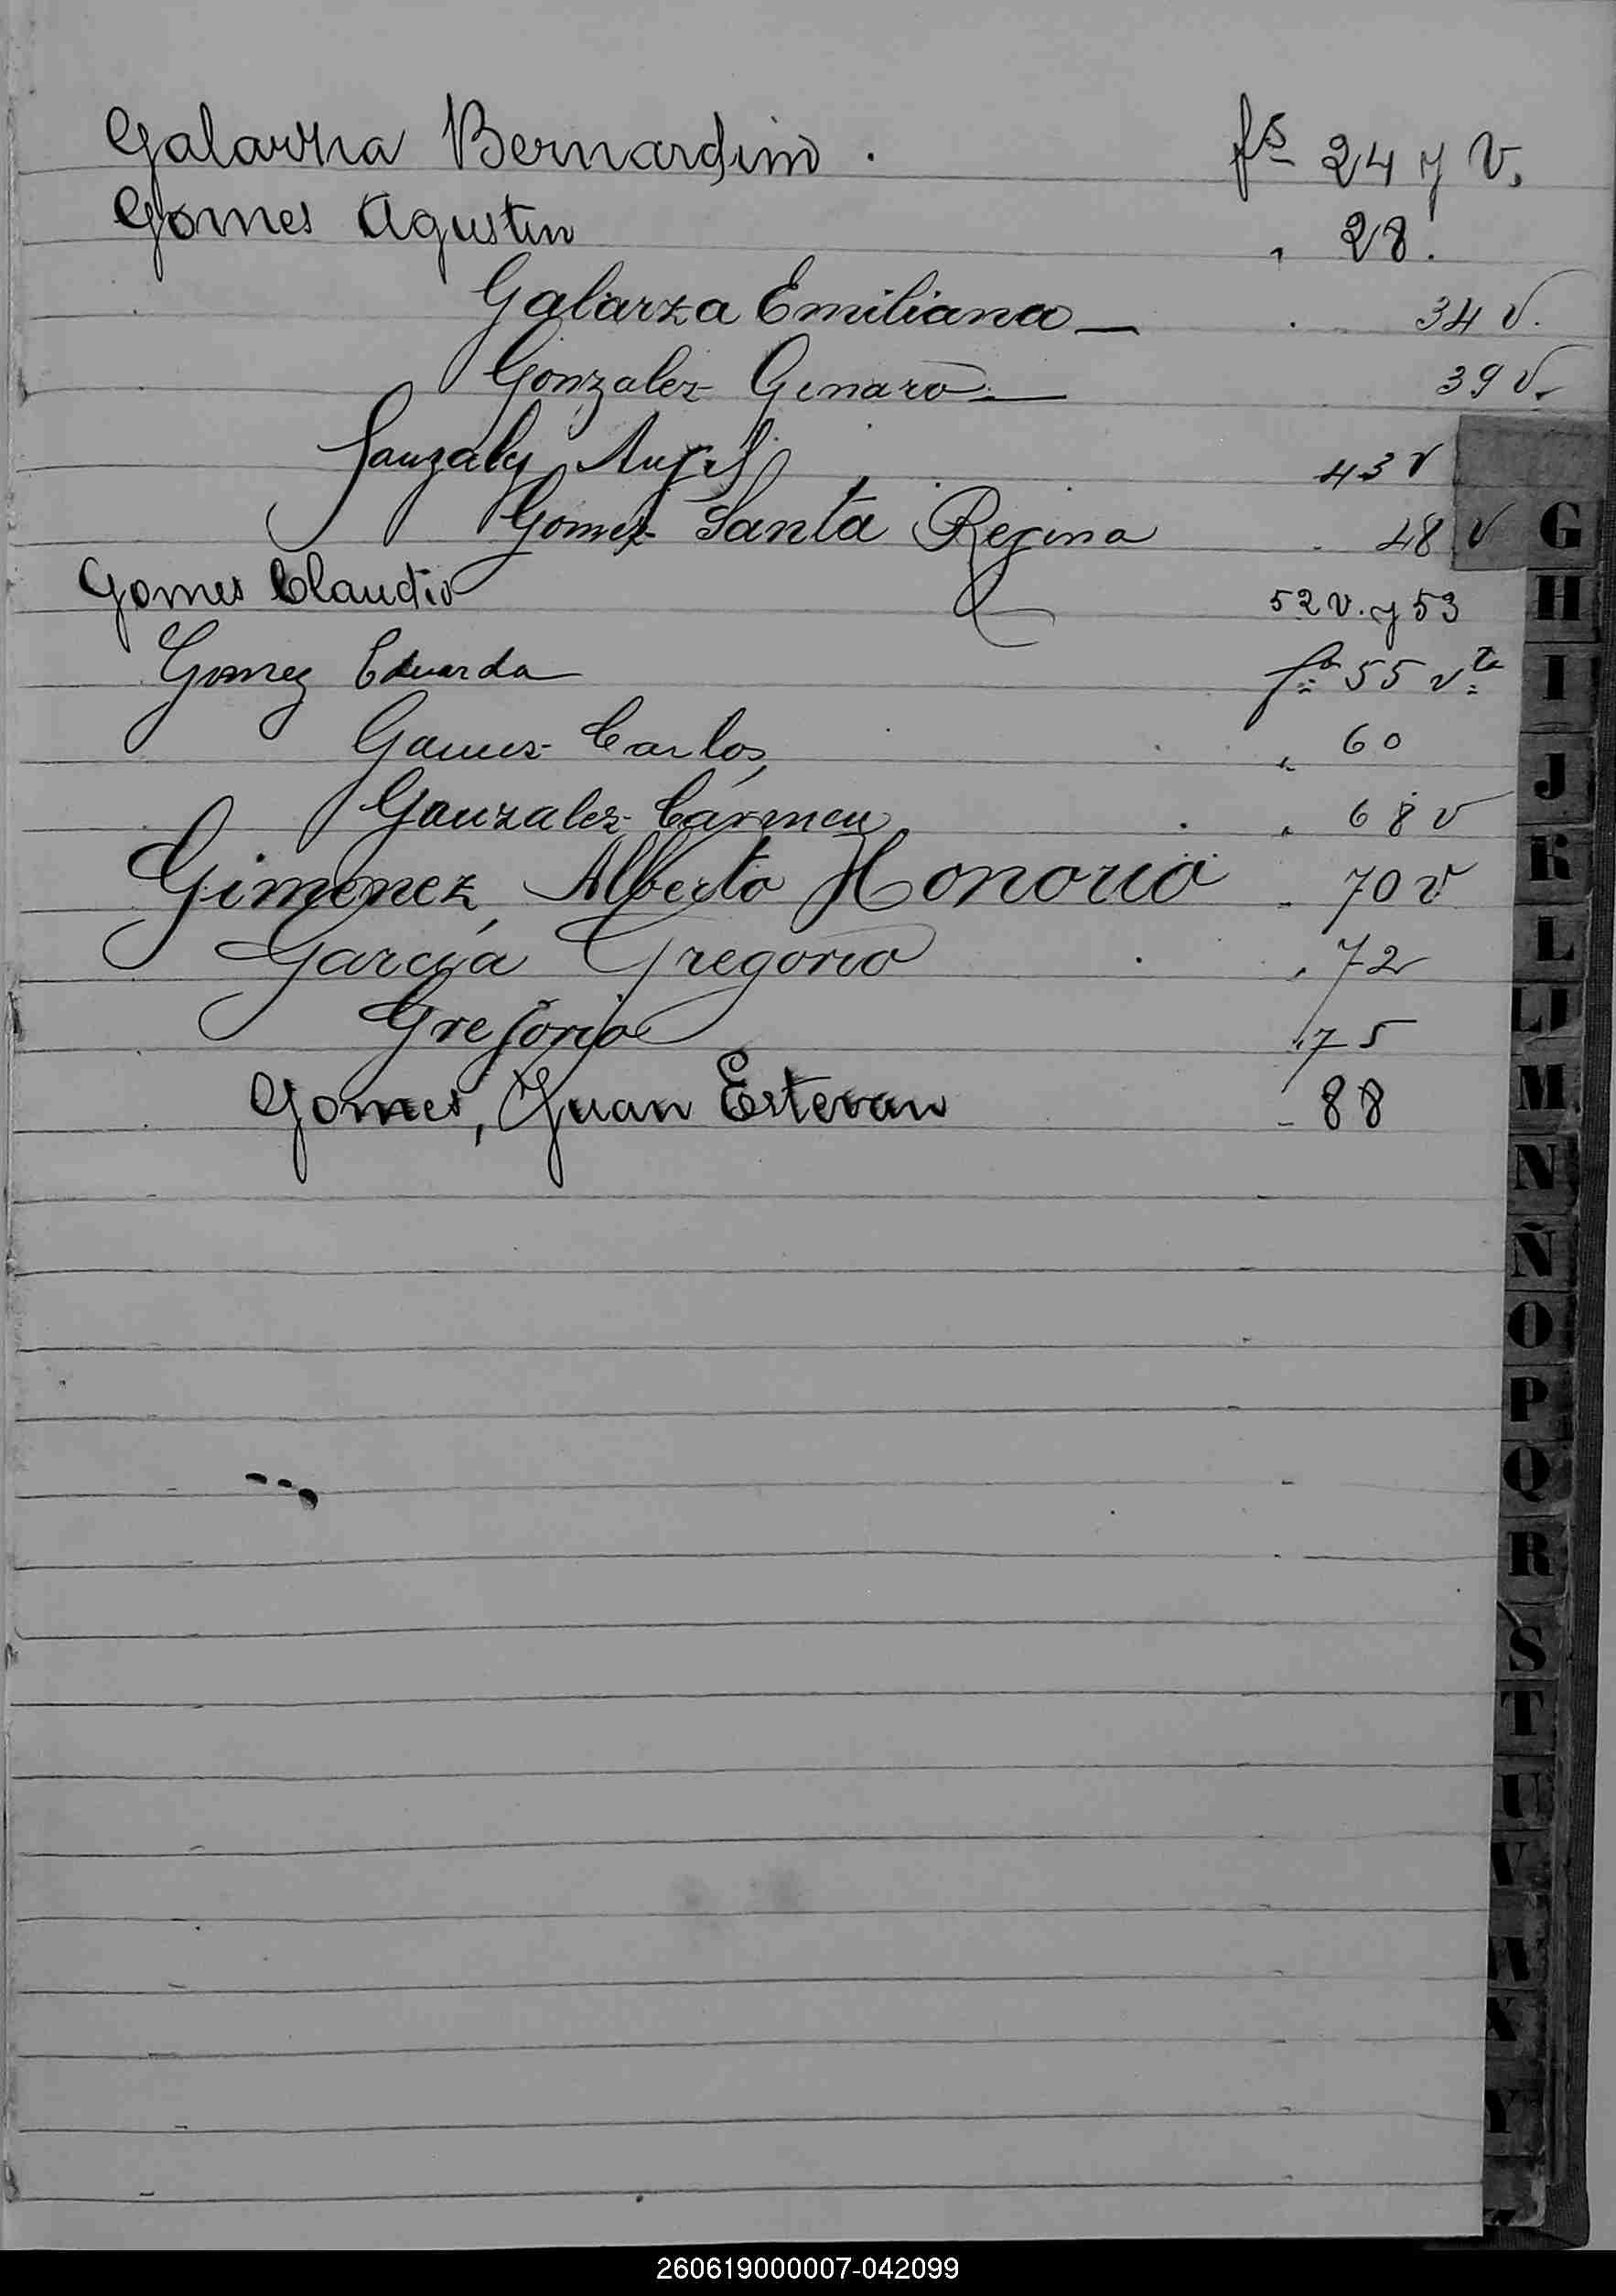 Galarza Bernardino. fs 24 y v.
Gomes Agustin " 28.
Galarza Emiliana 34 v.
Gonzalez Genaro 39 v.
Gonzalez Angel 43 v
Gomez Santa Regina 48 v
Gomes Claudio 52 v. y 53
Gomez Eduarda fs 55 vta
Gomez Carlos " 60
Gonzalez Cármen " 68 v
Gimenez, Alberto Honorio " 70 v
Garcia Gregorio " 72
Gregorio " 75
Gomes, Juan Estevan - 88
G
H
I
J
K
L
LL
M
N
Ñ
O
P
Q
R
S
T
U
V
X
Y
260619000007-042099